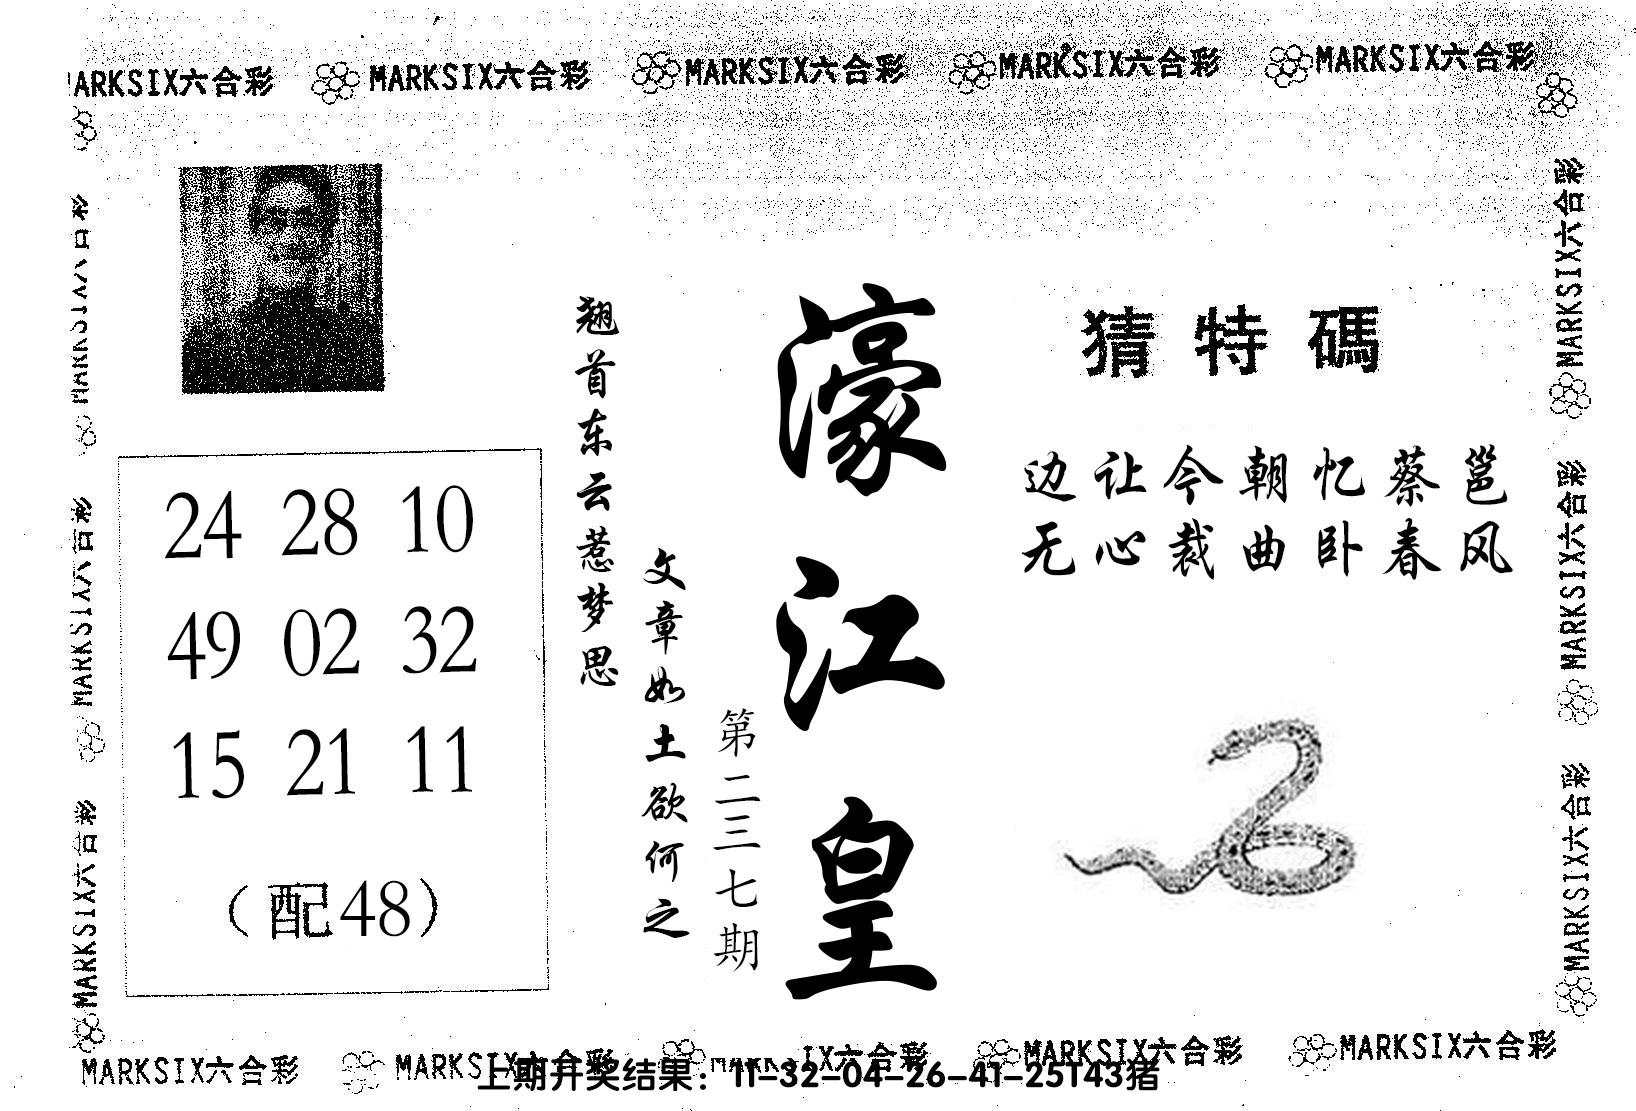 MARKSIX六合彩 MARKSIX六合彩 MARKSIX六合彩 MARKSIX六合彩 MARKSIX六合彩
猜特碼
边让今朝忆蔡邕
无心裁曲卧春风
濠江皇
第二三七期
翘首东云惹梦思
文章如土欲何之
24 28 10
49 02 32
15 21 11
（配48）
MARKSIX六合彩
MARKSIX六合彩
MARKSIX六合彩
MARKSIX六合彩
MARKSIX六合彩
MARKSIX六合彩
MARKSIX六合彩 MARKSIX六合彩 MARKSIX六合彩 MARKSIX六合彩 MARKSIX六合彩
上期开奖结果：11-32-04-26-41-25T43猪